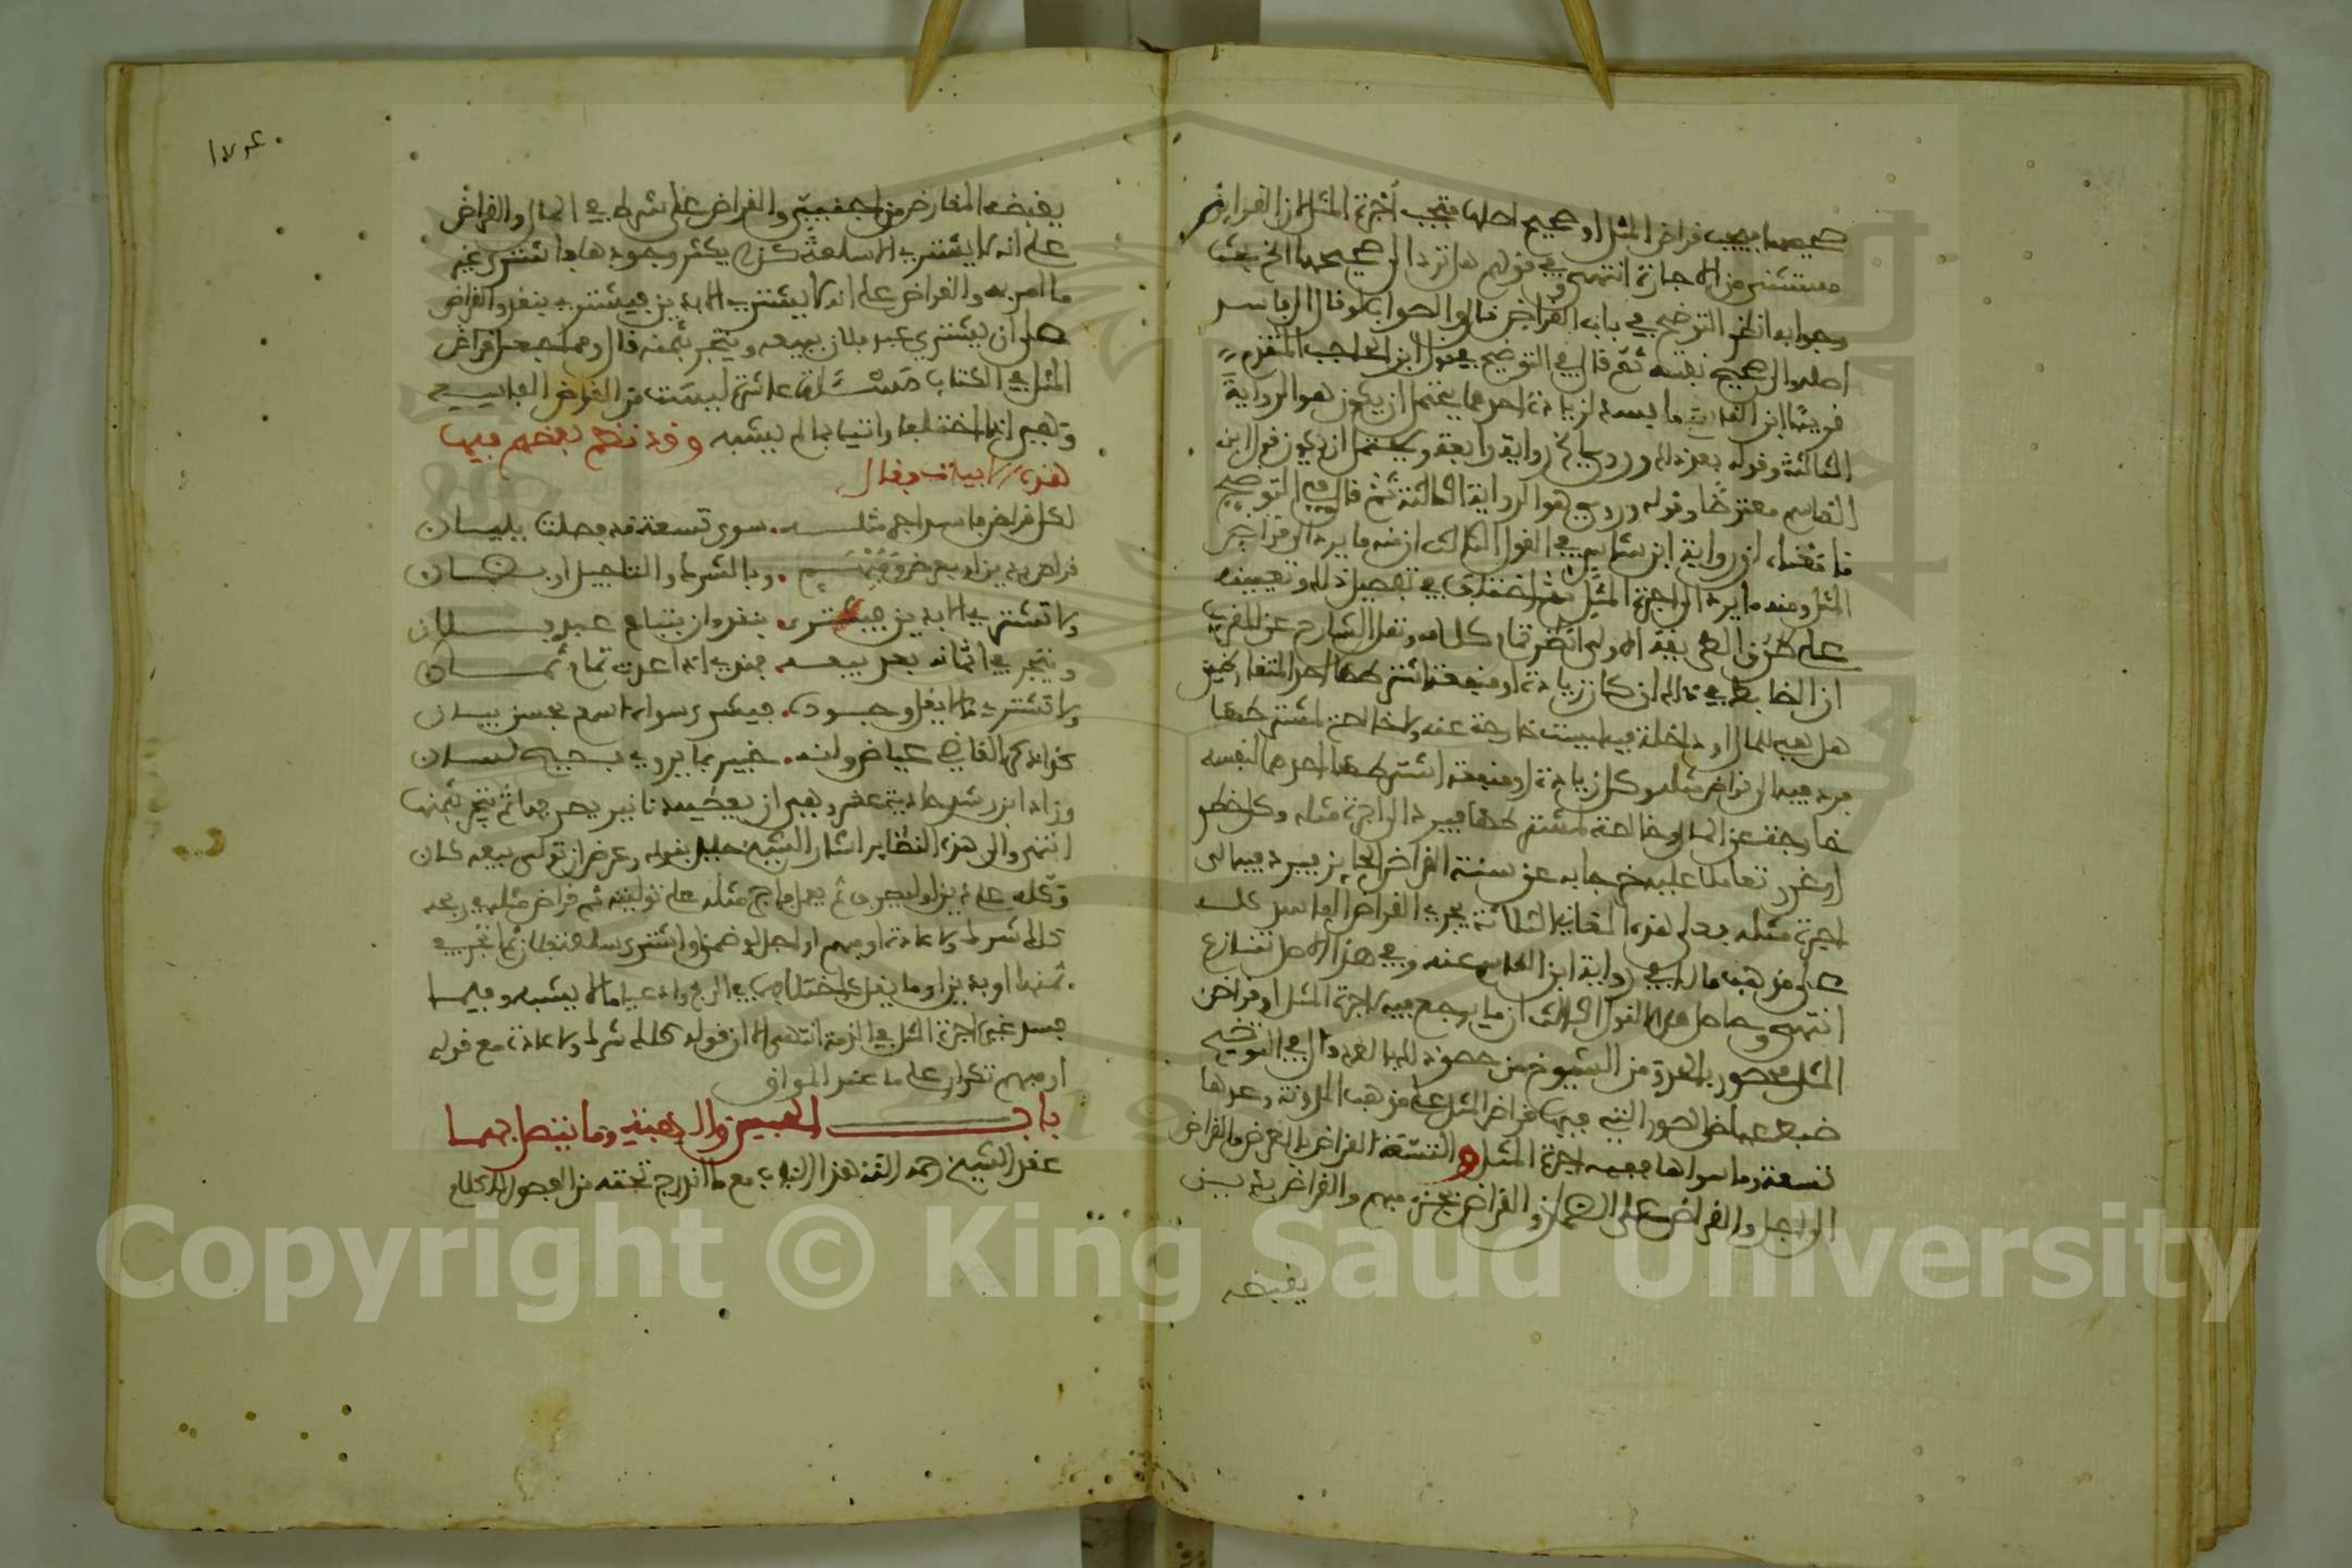 صحيحها فيجب قراض المثل او صحيح اصلها فتجب أجرة المثل لان القراض
مستثنى من الاجارة انتهى وفي قولهم هل ترد الى صحيحها الخ بحث
وجوابه انظر التوضيح في باب القراض قال والصواب لو قال الى فاسد
اصلها والى صحيح نفسه ثم قال في التوضيح في قول ابن الحاجب المتقدم
قريبا ابن القاسم ما يفسد لزيادة احدهما يحتمل ان يكون هو الرواية
الثالثة وقوله بعد ذلك وروي رواية رابعة ويحتمل ان يكون قول ابن
القاسم معترضا وقوله وروي هو الرواية الثالثة ثم قال في التوضيح
رواية ابن شاس في القول الثالث ان منه ما يرد الى قراض
المثل ومنه ما يرد الى اجرة المثل ثم اختلف في تفصيل ذلك وتعيينه
على طرق الطريقة الاولى انظر تمام كلامه ونقل الشارح عن المغربي
ان الضابط في ذلك ان كل زيادة او منفعة اشترطها احد المتقارضين
هل هي للمال او داخلة فيه ليست خارجة عنه ولا خالصة لمشترطها
فيرد فيها الى قراض مثله وكل زيادة او منفعة اشترطها احدهما لنفسه
خارجة عن المال وخالصة لمشترطها فيرد الى اجرة مثله وكل خطر
او غرر تعاملا عليه خرجا به عن سنة القراض الجائز فيرد فيه الى
اجرة مثله فعلى هذه الثلاثة يجري القراض الفاسد كله
على مذهب مالك في رواية ابن القاسم عنه وفي هذا الاصل تنازع
انتهى وحاصل هذا القول الثالث ان ما يرجع فيه لاجرة المثل او قراض
المثل محصور بالعد ومن الشيوخ من حصره قال في التوضيح
ضبط عياض الصور التي فيها قراض المثل على مذهب المدونة وعدها
تسعة وما سواها ففيه اجرة المثل والتسعة القراض بالعرض والقراض
الى اجل والقراض على الضمان والقراض بجزء مبهم والقراض بدين
يقبضه
١٧٤
يقبضه المقارض من اجنبي والقراض على شرك في المال والقراض
على انه لا يشتري الا سلعة كذا لا يكثر وجودها فاشترى غير
ما امر به والقراض على انه لا يشتري الا بدين فيشتري بنقد والقراض
على ان يشتري عبد فلان يبيعه ويتجر بثمنه قال ومما فيه قراض
المثل في الكتاب مسئلة عاشرة ليست من القراض الفاسد
وهي اذا اختلفا واتيا بما لا يشبه وقد نظم بعضهم فيها
هذه الابيات فقال
لكل قراض فاسد اجر مثله . سوى تسعة قد فصلت ببيان
قراض بدين او بعرض ومبهم . وبالشرك والتاجيل او بضمان
ولا تشتري الا بدين فيشتري . بنقد وان يبتاع عبد فلان
ويتجر في اثمانه بعد بيعه فهذي اذا عدت تمام ثمان
ولا تشتري ما لا يقل وجوده . فيشتري سواه اسمع بحسن بيان
كذا ذكر القاضي عياض وانه . خبير بما يروي فصيح لسان
وزاد ابن رشد حادية عشر وهي ان يعطيه دنانير يصرفها ثم يتجر بثمنها
انتهى والى هذه النظاير اشار الشيخ خليل بقوله وعرض ان تولى بيعه كان
وكله على دين او ليصرف ثم يعمل فاجر مثله على توليته ثم قراض مثله في ربحه
كلك شرك ولا عادة او مبهم او اجل او ضمن او اشتر سلعة فلان ثم اتجر في
ثمنها او بدين او ما يقل كاختلافهما في الربح وادعيا ما لا يشبه وفيما
فسد غيره اجرة المثل في الذمة انتهى الا ان قوله كلك شرك ولا عادة مع قوله
او مبهم تكرار على ما عند المواق
باب العين والدين وما ينضاف لهما
عقد الشيخ رحمه الله هذا الباب مع ما اندرج تحته من الفصول للكلام